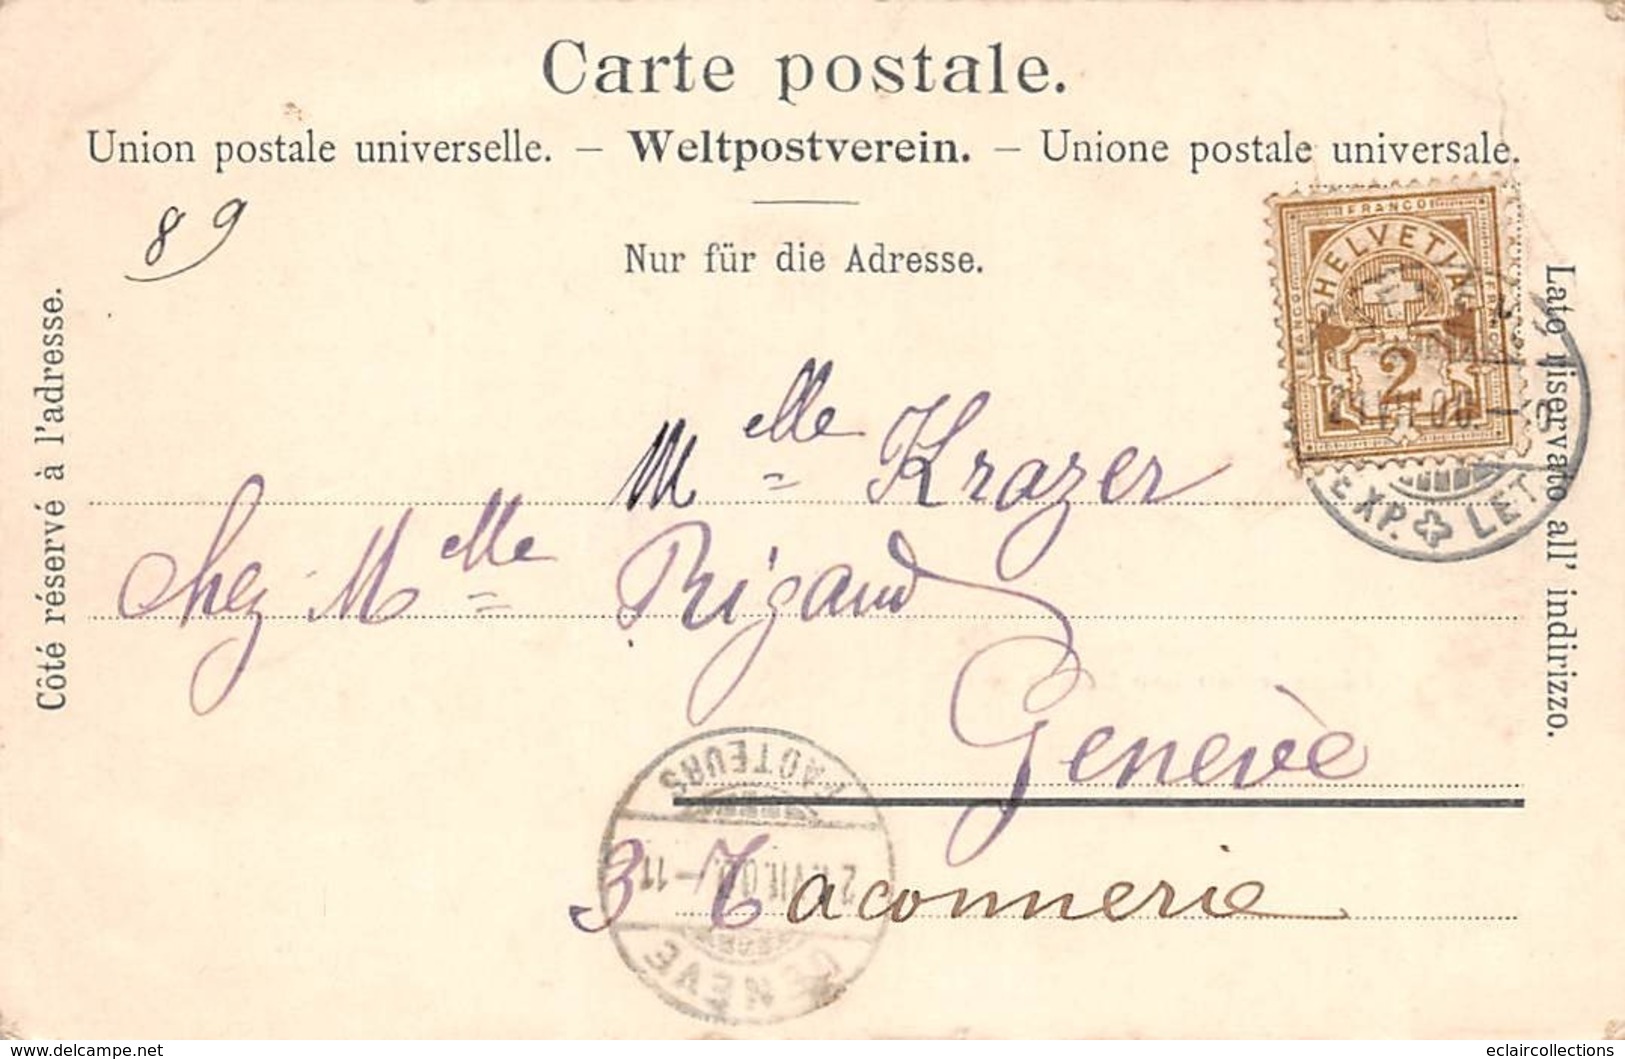 Carte postale.
Union postale universelle. — Weltpostverein. — Unione postale universale.
Nur für die Adresse.
89
Côté réservé à l'adresse.
Lato riservato all' indirizzo.
FRANCO
HELVETIA
FRANCO
FRANCO
2
EXP. LET
Melle Krazer
chez Melle Rigaud
Genève
3 Taconnerie
FACTEURS
VII
GENEVE
delcampe.net
eclaircollections